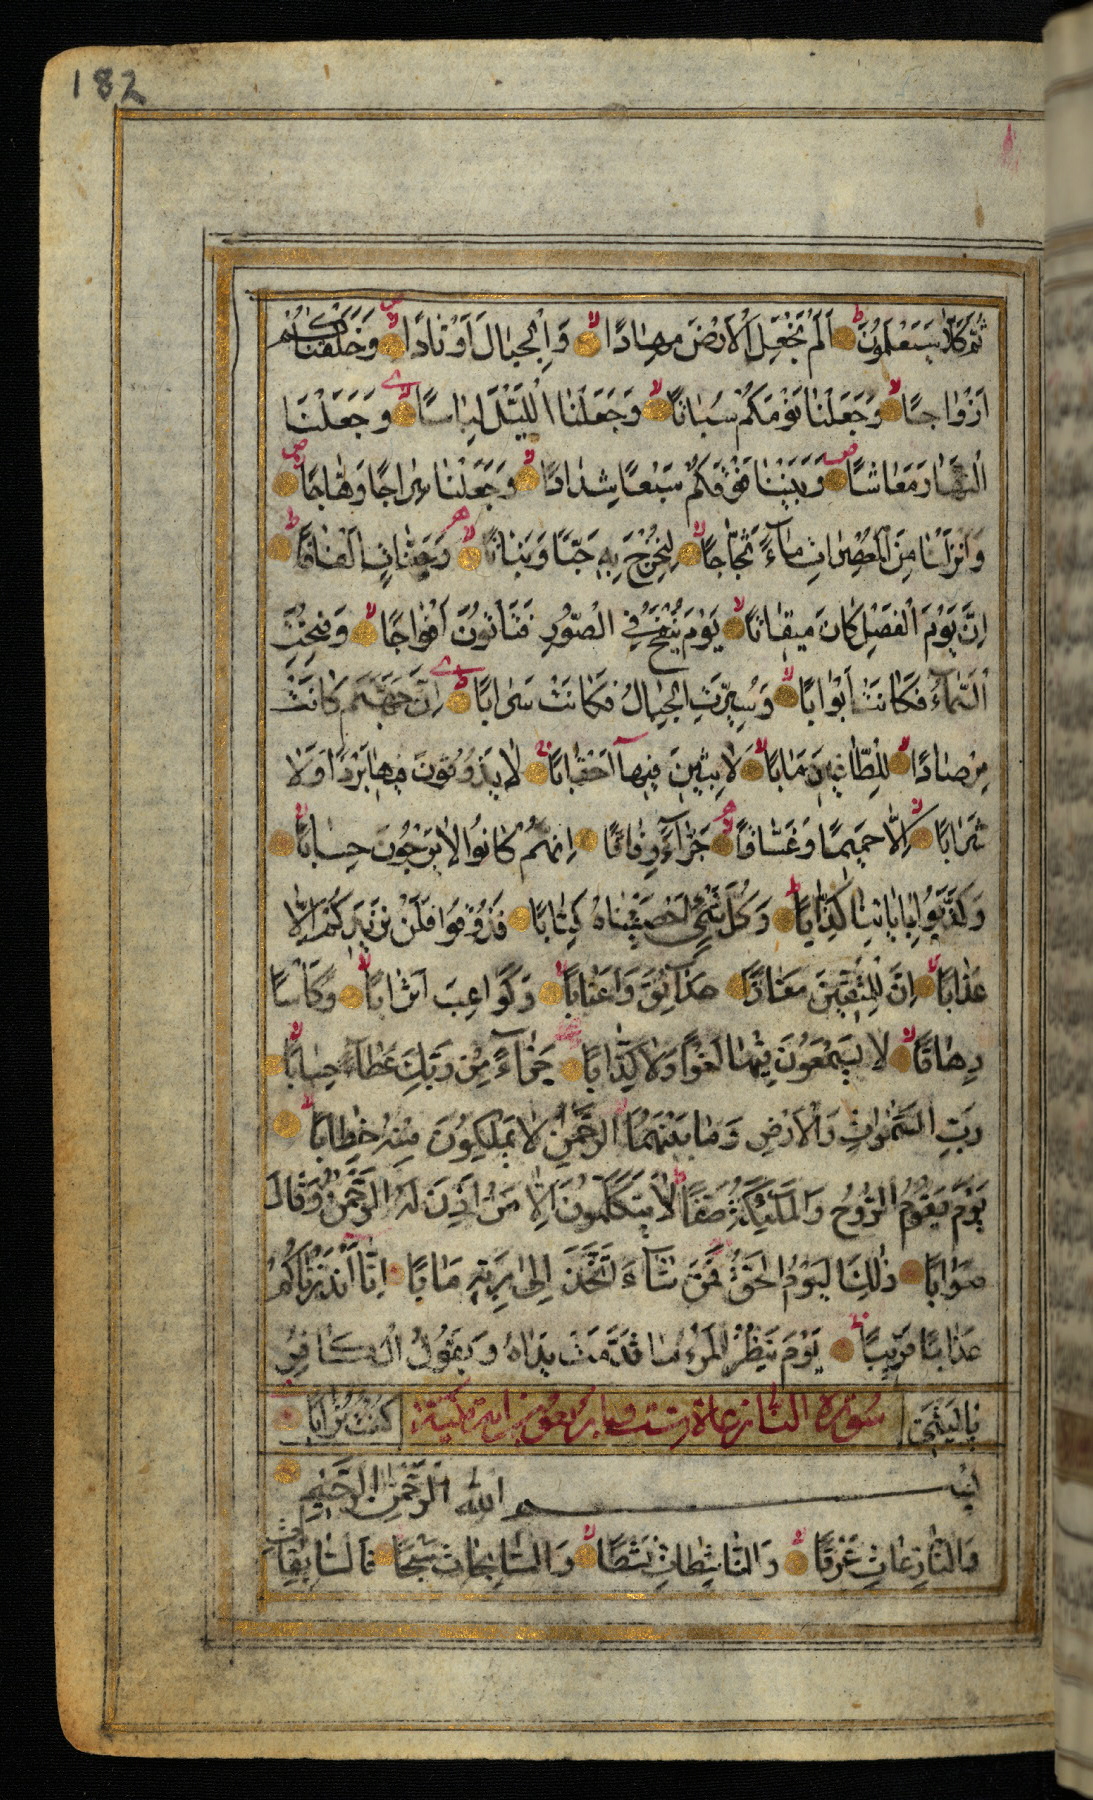 182
ثُمَّ كَلَّا سَيَعْلَمُونَ اَلَمْ نَجْعَلِ الْاَرْضَ مِهَادًا وَالْجِبَالَ اَوْتَادًا وَخَلَقْنَاكُمْ
اَزْوَاجًا وَجَعَلْنَا نَوْمَكُمْ سُبَاتًا وَجَعَلْنَا الَّيْلَ لِبَاسًا وَجَعَلْنَا
النَّهَارَ مَعَاشًا وَبَنَيْنَا فَوْقَكُمْ سَبْعًا شِدَادًا وَجَعَلْنَا سِرَاجًا وَهَّاجًا
وَاَنْزَلْنَا مِنَ الْمُعْصِرَاتِ مَآءً ثَجَّاجًا لِنُخْرِجَ بِهِ حَبًّا وَنَبَاتًا وَجَنَّاتٍ اَلْفَافًا
اِنَّ يَوْمَ الْفَصْلِ كَانَ مِيقَاتًا يَوْمَ يُنْفَخُ فِي الصُّورِ فَتَأْتُونَ اَفْوَاجًا وَفُتِحَتِ
السَّمَآءُ فَكَانَتْ اَبْوَابًا وَسُيِّرَتِ الْجِبَالُ فَكَانَتْ سَرَابًا اِنَّ جَهَنَّمَ كَانَتْ
مِرْصَادًا لِلطَّاغِينَ مَابًا لَابِثِينَ فِيهَآ اَحْقَابًا لَا يَذُوقُونَ فِيهَا بَرْدًا وَلَا
شَرَابًا اِلَّا حَمِيمًا وَغَسَّاقًا جَزَآءً وِفَاقًا اِنَّهُمْ كَانُوا لَا يَرْجُونَ حِسَابًا
وَكَذَّبُوا بِايَاتِنَا كِذَّابًا وَكُلَّ شَيْءٍ اَحْصَيْنَاهُ كِتَابًا فَذُوقُوا فَلَنْ نَزِيدَكُمْ اِلَّا
عَذَابًا اِنَّ لِلْمُتَّقِينَ مَفَازًا حَدَآئِقَ وَاَعْنَابًا وَكَوَاعِبَ اَتْرَابًا وَكَاْسًا
دِهَاقًا لَا يَسْمَعُونَ فِيهَا لَغْوًا وَلَا كِذَّابًا جَزَآءً مِنْ رَبِّكَ عَطَآءً حِسَابًا
رَبِّ السَّمٰوَاتِ وَالْاَرْضِ وَمَا بَيْنَهُمَا الرَّحْمٰنِ لَا يَمْلِكُونَ مِنْهُ خِطَابًا
يَوْمَ يَقُومُ الرُّوحُ وَالْمَلٰٓئِكَةُ صَفًّا لَا يَتَكَلَّمُونَ اِلَّا مَنْ اَذِنَ لَهُ الرَّحْمٰنُ وَقَالَ
صَوَابًا ذٰلِكَ الْيَوْمُ الْحَقُّ فَمَنْ شَآءَ اتَّخَذَ اِلٰى رَبِّهِ مَابًا اِنَّا اَنْذَرْنَاكُمْ
عَذَابًا قَرِيبًا يَوْمَ يَنْظُرُ الْمَرْءُ مَا قَدَّمَتْ يَدَاهُ وَيَقُولُ الْكَافِرُ
يَالَيْتَنِي سورة النازعات كُنْتُ تُرَابًا
بِسْمِ اللهِ الرَّحْمٰنِ الرَّحِيمِ
وَالنَّازِعَاتِ غَرْقًا وَالنَّاشِطَاتِ نَشْطًا وَالسَّابِحَاتِ سَبْحًا فَالسَّابِقَاتِ